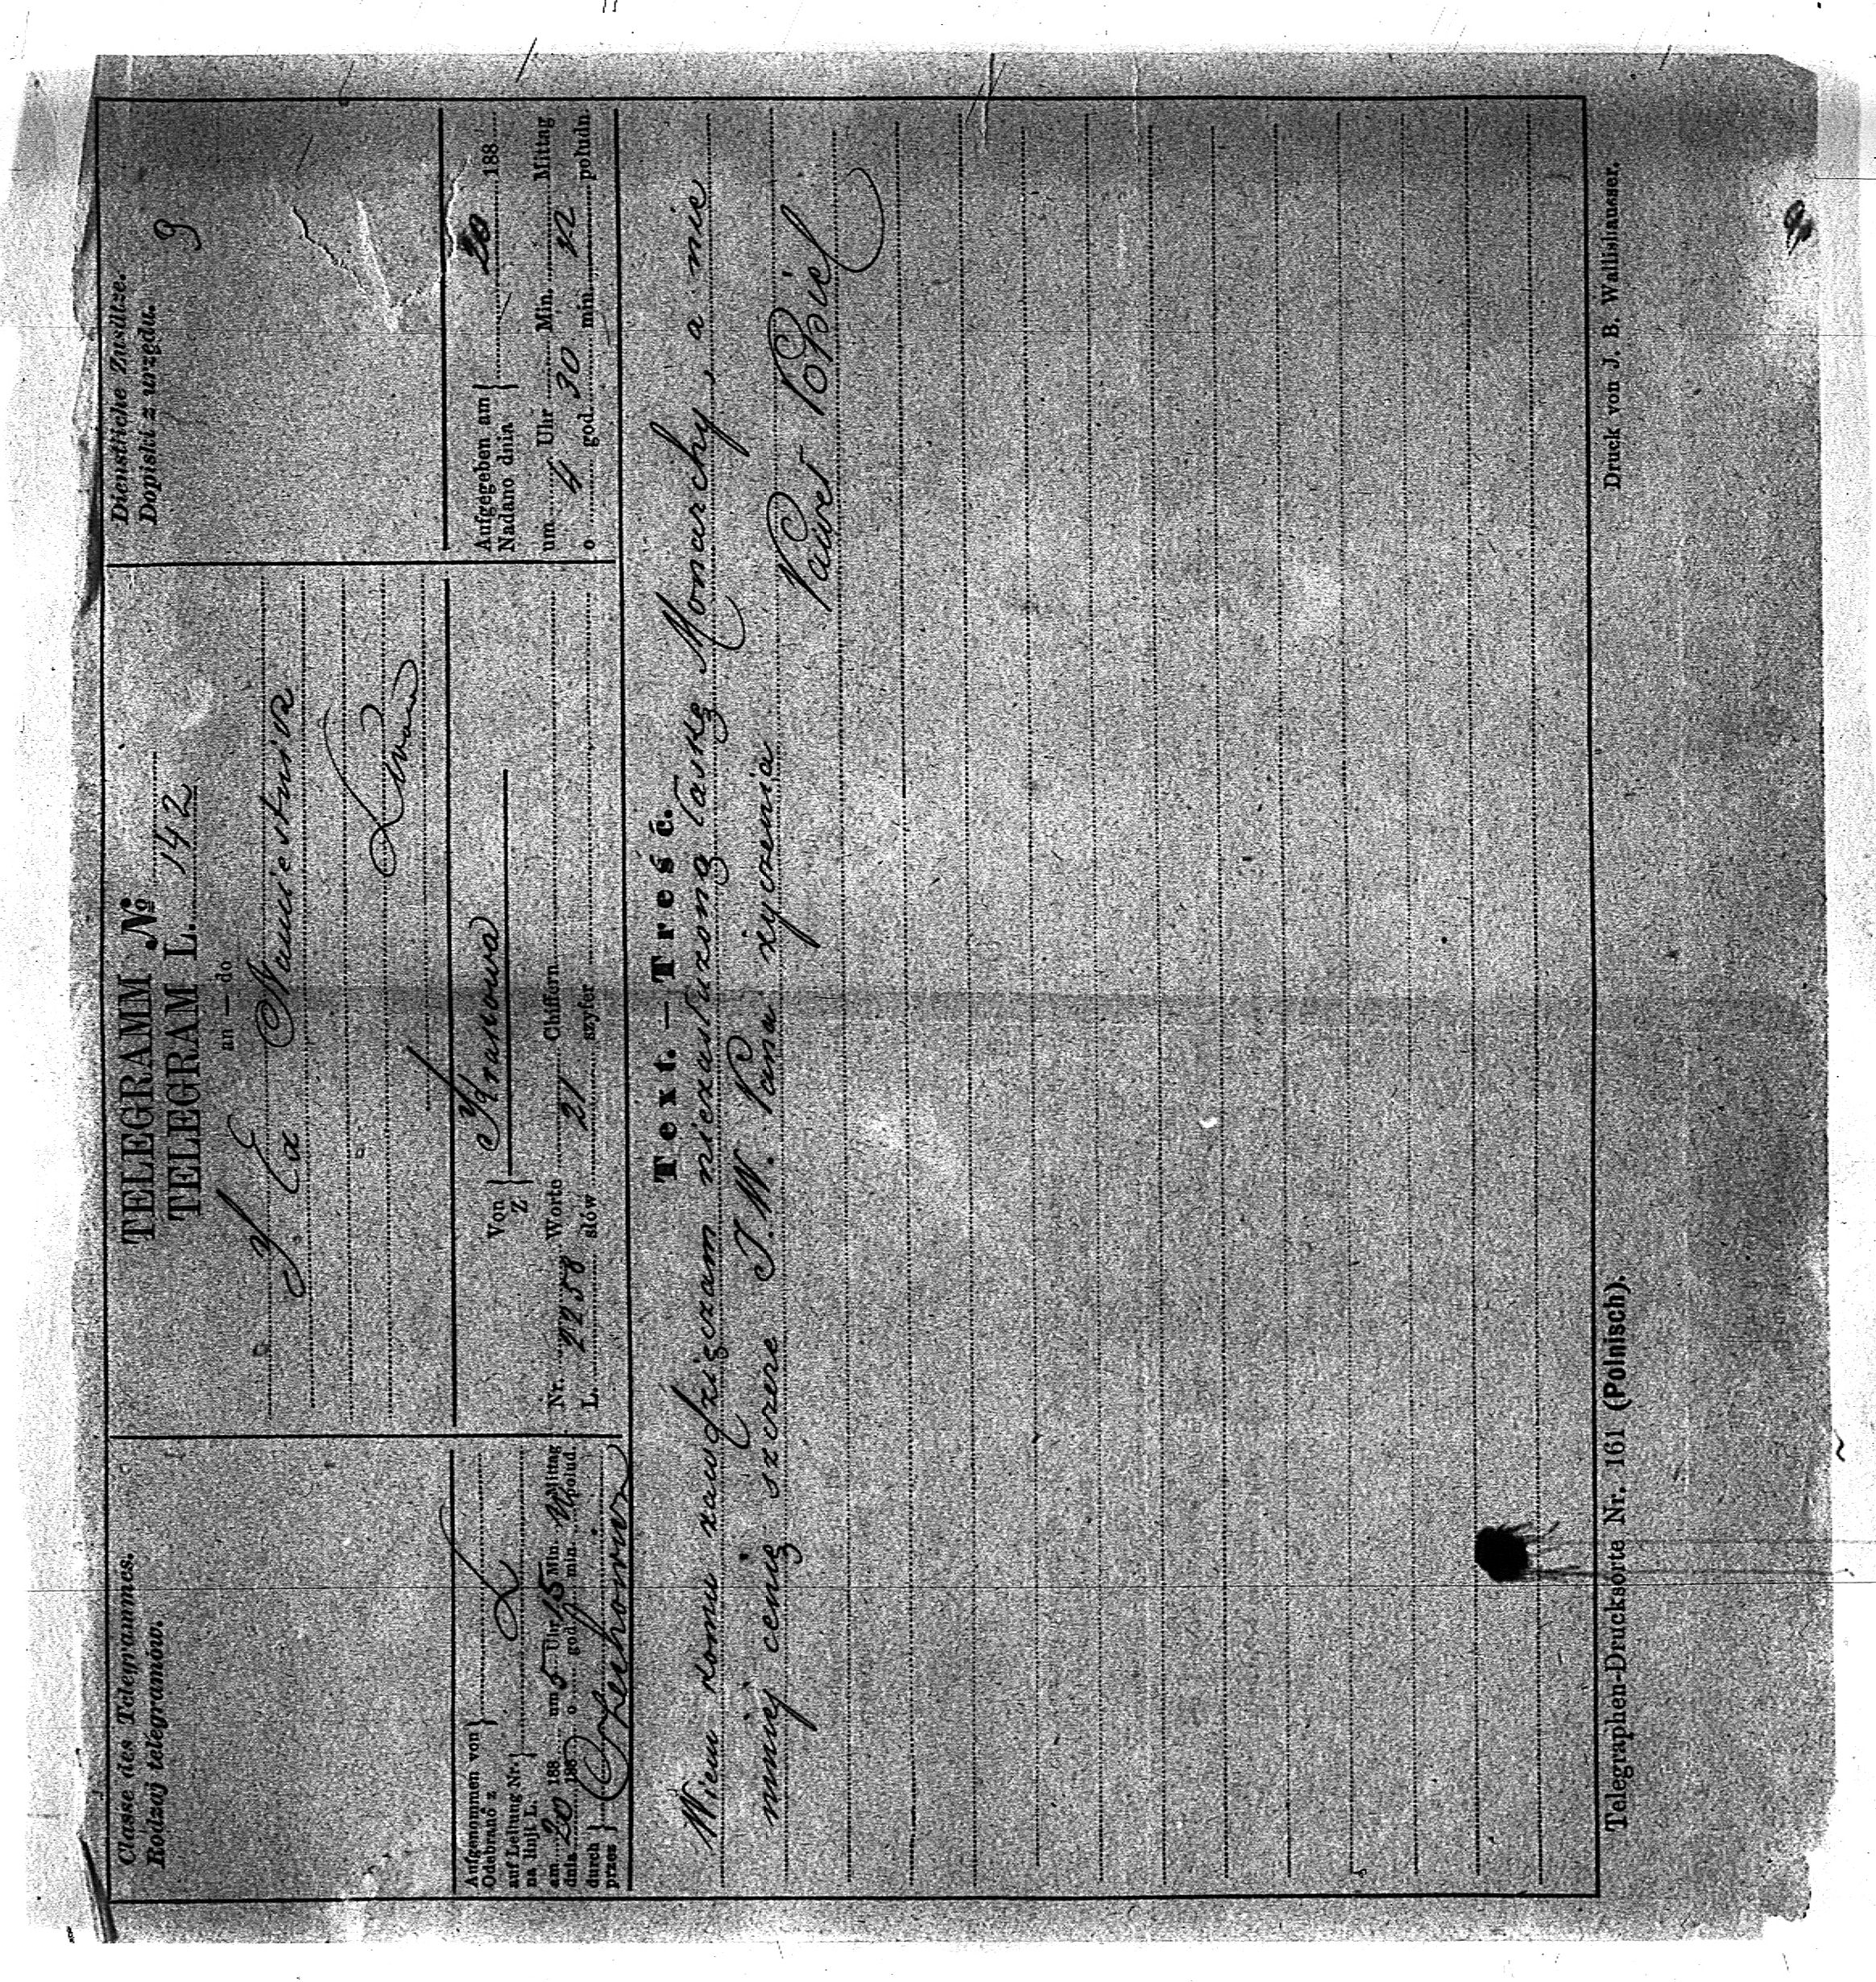 Classe des Telegrammes.
Rodzaj telegramów.
TELEGRAMM №
TELEGRAM L. 142
an — do
J. Ex Namiestnica
Lwów
Dienstliche Zusätze.
Dopiski z urzędu.
9
Aufgenommen von
Odebrano z
auf Leitung Nr.
na linji L.
L
am 20 188 um 5 Uhr 15 Min. Mittag
dnia 188 o god. min. połud.
durch
przez
Von
Z
Krakowa
Nr. Worte Chiffern
L. 2258 słów 21 szyfer
Aufgegeben am
Nadano dnia
20 188
um 4 Uhr Min. Mittag
o god. 30 min. 12 południ
Text. — Treść.
Wiem komu zawdzięczam niezasłużoną łaskę Monarchy, a nie
mniej cenię szczere J.W. Pana życzenia
Paweł Popiel
Telegraphen-Drucksorte Nr. 161 (Polnisch).
Druck von J. B. Wallishausser.